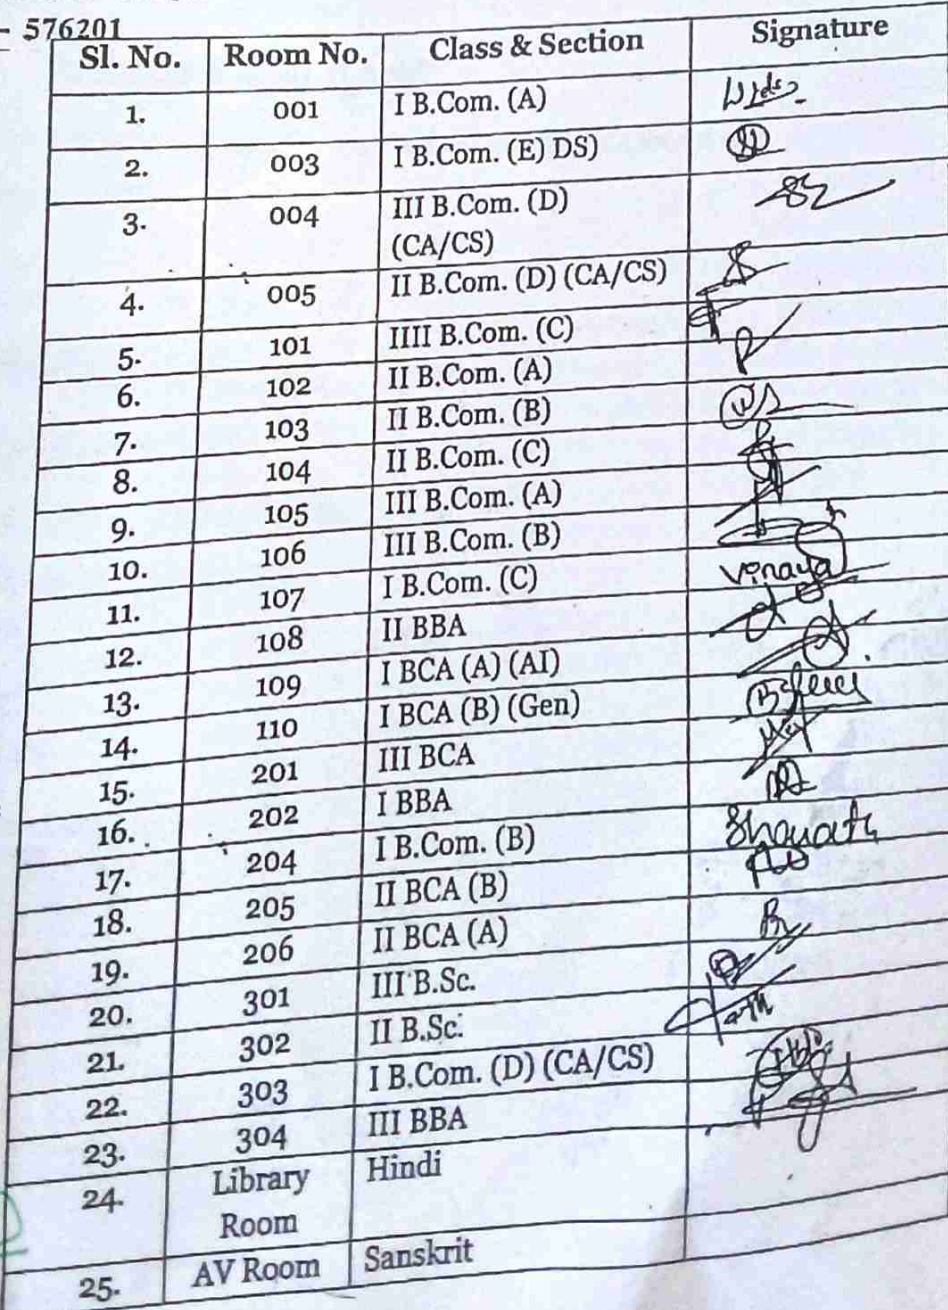 - 576201
Sl. No. Room No. Class & Section Signature
1. 001 I B.Com. (A)
2. 003 I B.Com. (E) DS)
3. 004 III B.Com. (D)
(CA/CS)
4. 005 II B.Com. (D) (CA/CS)
5. 101 IIII B.Com. (C)
6. 102 II B.Com. (A)
7. 103 II B.Com. (B)
8. 104 II B.Com. (C)
9. 105 III B.Com. (A)
10. 106 III B.Com. (B)
11. 107 I B.Com. (C) Vinaya
12. 108 II BBA
13. 109 I BCA (A) (AI)
14. 110 I BCA (B) (Gen)
15. 201 III BCA
16. 202 I BBA
17. 204 I B.Com. (B)
18. 205 II BCA (B)
19. 206 II BCA (A)
20. 301 III B.Sc.
21. 302 II B.Sc.
22. 303 I B.Com. (D) (CA/CS)
23. 304 III BBA
24. Library Hindi
Room
25. AV Room Sanskrit